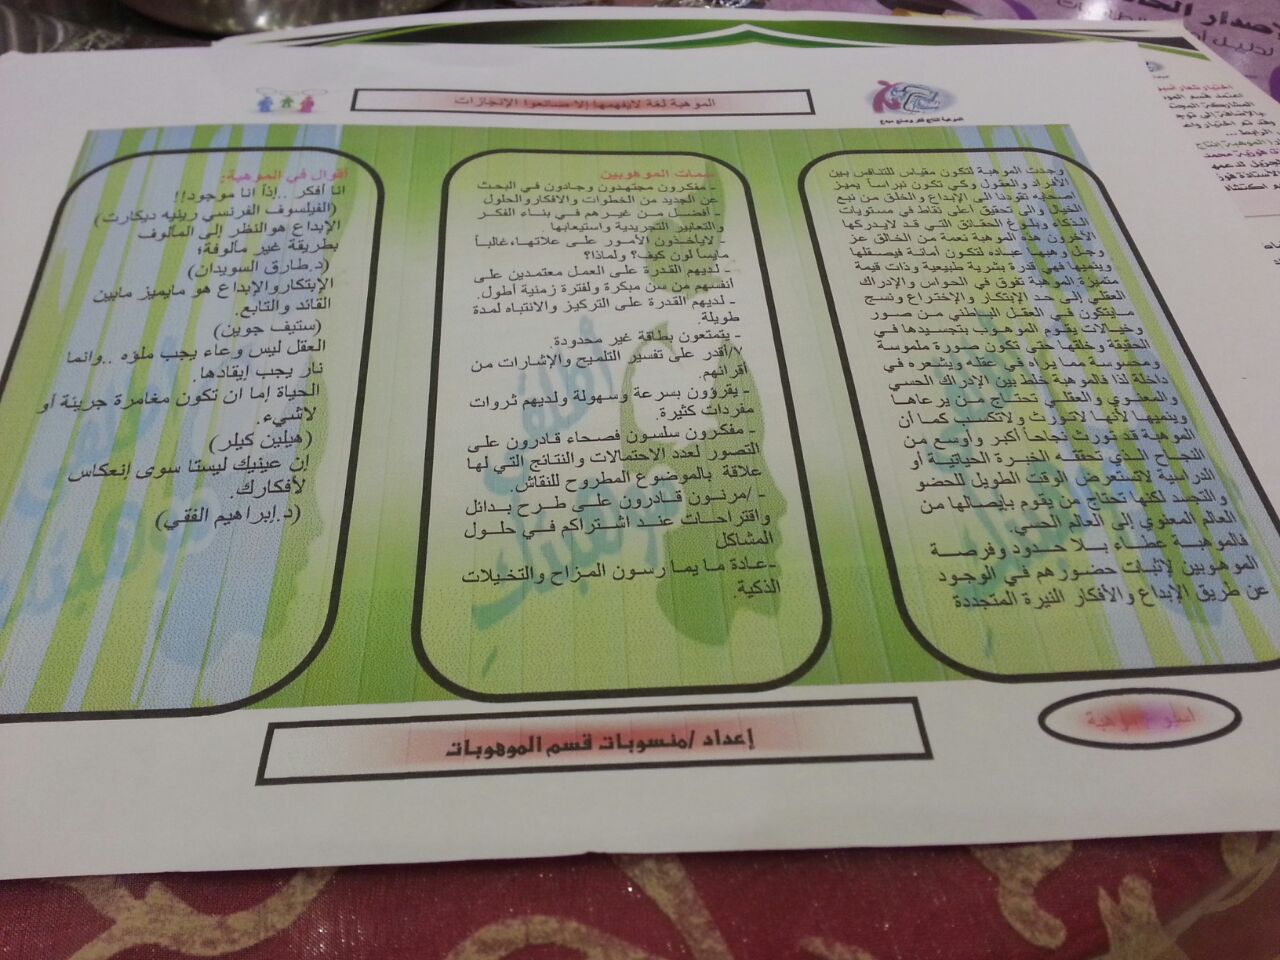 الموهبة لغة لايفهمها إلا صانعوا الإنجازات
وجدت الموهبة لتكون مقياس للتنافس بين
الأفراد والعقول وكي تكون نبراساً يميز
أصحابه تقودنا الى الإبداع والخلق من نبع
الخيال والى تحقيق أعلى نقاط في مستويات
الذكاء وبلوغ الحقائق التي قد لايدركها
الآخرون هذه الموهبة نعمة من الخالق عز
وجل وهبها عباده لتكون أمانة فيصقلها
وينميها فهي قدرة بشرية طبيعية وذات قيمة
متميزة الموهبة تفوق في الحواس والإدراك
العقلي إلى حد الإبتكار والإختراع ونسج
مايتكون في العقل الباطني من صور
وخيالات يقوم الموهوب بتجسيدها في
الحقيقة وخلقها حتى تكون صورة ملموسة
ومحسوسة مما يراه في عقله ويشعره في
داخلة لذا فالموهبة خلط بين الإدراك الحسي
والمعنوي والعقلي تحتاج من يرعاها
وينميها لأنها لاتورث ولاتكتسب كما أن
الموهبة قد تورث نجاحاً أكبر وأوسع من
النجاح الذي تحققه الخبرة الحياتية أو
الدراسية لاتستعرض الوقت الطويل للحضو
والتجسد لكنها تحتاج من يقوم بإيصالها من
العالم المعنوي إلى العالم الحسي.
فالموهبة عطاء بلا حدود وفرصة
الموهوبين لإثبات حضورهم في الوجود
عن طريق الإبداع والأفكار النيرة المتجددة
سمات الموهوبين
- مفكرون مجتهدون وجادون في البحث
عن الجديد من الخطوات والافكار والحلول
- أفضل من غيرهم في بناء الفكر
والتعابير التجريدية واستيعابها.
- لايأخذون الأمور على علاتها،غالباً
مايسألون كيف؟ ولماذا؟
- لديهم القدرة على العمل معتمدين على
أنفسهم من سن مبكرة ولفترة زمنية أطول.
- لديهم القدرة على التركيز والانتباه لمدة
طويلة.
- يتمتعون بطاقة غير محدودة.
٧/أقدر على تفسير التلميح والإشارات من
أقرانهم.
- يقرؤون بسرعة وسهولة ولديهم ثروات
مفردات كثيرة.
- مفكرون سلسون فصحاء قادرون على
التصور لعدد الاحتمالات والنتائج التي لها
علاقة بالموضوع المطروح للنقاش.
- /مرنون قادرون على طرح بدائل
واقتراحات عند اشتراكم في حلول
المشاكل
-عادة ما يما رسون المزاح والتخيلات
الذكية
أقوال في الموهبة:
أنا أفكر ..إذاً أنا موجود!!
(الفيلسوف الفرنسي رينيه ديكارت)
الإبداع هو النظر إلى المألوف
بطريقة غير مألوفة؛
(د.طارق السويدان)
الإبتكار والإبداع هو مايميز مابين
القائد والتابع.
(ستيف جوبز)
العقل ليس وعاء يجب ملؤه ..وإنما
نار يجب إيقادها.
الحياة إما أن تكون مغامرة جريئة أو
لاشيء.
(هيلين كيلر)
إن عينيك ليستا سوى إنعكاس
لأفكارك.
(د.إبراهيم الفقي)
إعداد /منسوبات قسم الموهوبات